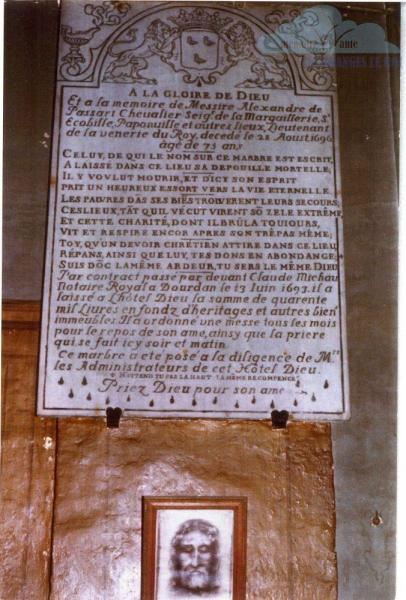 A LA GLOIRE DE DIEU
Et a la memoire de Messire Alexandre de
Passart Chevalier Seigr. de la Margaillerie, St
Ecobille, Paponville et autres lieux, Lieutenant
de la venerie du Roy, decede le 21 Aoust 1696
âgé de 75 ans
CELUY, DE QUI LE NOM SUR CE MARBRE EST ESCRIT,
A LAISSÉ DANS CE LIEU SA DEPOUILLE MORTELLE;
IL Y VOVLUT MOURIR, ET D'ICY SON ESPRIT
PRIT UN HEUREUX ESSORT VERS LA VIE ETERNELLE.
LES PAUVRES DANS SES BIĒS TROUVERENT LEURS SECOURS,
CES LIEUX, TĀT QU'IL VÉCUT VIRENT SŌ ZELE EXTRÊME,
ET CETTE CHARITÉ, DONT IL BRÛLA TOUIOURS,
VIT ET RESPIRE ENCOR APRES SON TRÉPAS MÊME;
TOY, QU'UN DEVOIR CHRÉTIEN ATTIRE DANS CE LIEU,
RÉPANS, AINSI QUE LUY, TES DONS EN ABONDANGE;
SUIS DŌC LA MÊME ARDEUR, TU SERS LE MÊME DIEU
Par contract passé par devant Claude Michau
Notaire Royal a Dourdan le 13 Iuin 1693. il a
laissé a L'hôtel Dieu la somme de quarente
mil Livres en fondz d'heritages et autres bien
immeubles. Il a ordonné une messe tous les mois
pour le repos de son ame, ainsy que la priere
qui se fait icy soir et matin.
Ce marbre a eté posé a la diligence de Mrs
les Administrateurs de cet Hôtel Dieu.
+ N'ATTENS TU PAS LA HAUT LA MÊME RECOMPENCE
Priez Dieu pour son ame